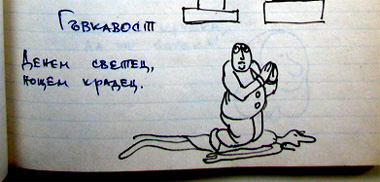 Гъвкавост
Денем светец,
нощем крадец.